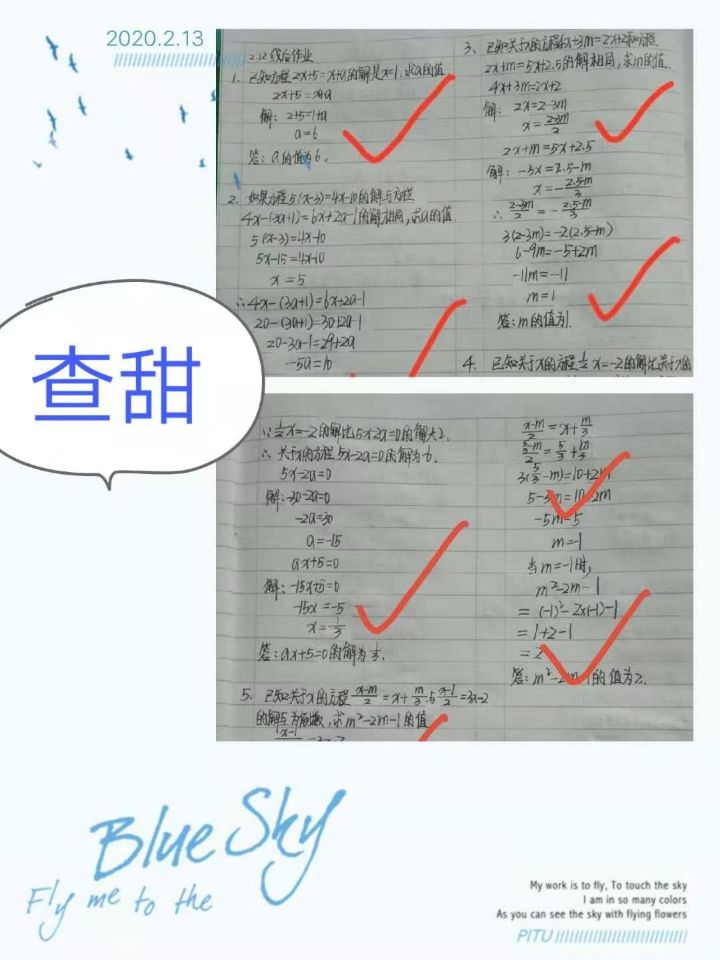 2020.2.13
2.12线后作业
1. 已知方程2x+5=x+a的解是x=1,求a的值
2x+5=x+a
解: 2+5=1+a
a=6
答: a的值为6.
2. 如果方程5(x-3)=4x-10的解与方程
4x-(3a+1)=6x+2a-1的解相同,求a的值
5(x-3)=4x-10
5x-15=4x-10
x=5
∴4x-(3a+1)=6x+2a-1
20-(3a+1)=30+2a-1
20-3a-1=29+2a
-5a=10
3. 已知关于x的方程4x+3m=2x+2和方程
2x+m=5x+2.5的解相同,求m的值.
4x+3m=2x+2
解: 2x=2-3m
x=(2-3m)/2
2x+m=5x+2.5
解: -3x=2.5-m
x=-(2.5-m)/3
∴(2-3m)/2=-(2.5-m)/3
3(2-3m)=-2(2.5-m)
6-9m=-5+2m
-11m=-11
m=1
答: m的值为1.
4. 已知关于x的方程½x=-2的解比关于x的
查甜
∵½x=-2的解比5x-2a=0的解大2.
∴关于x的方程5x-2a=0的解为-6.
5x-2a=0
解:-30-2a=0
-2a=30
a=-15
ax+5=0
解: -15x+5=0
-15x=-5
x=1/3
答: ax+5=0的解为⅓.
5. 已知关于x的方程(x-m)/2=x+m/3与(x-1)/2=3x-2
的解互为倒数,求m²-2m-1的值
(x-m)/2=x+m/3
(5/3-m)/2=5/3+m/3
3(5/3-m)=10+2m
5-3m=10+2m
-5m=5
m=-1
当m=-1时,
m²-2m-1
=(-1)²-2×(-1)-1
=1+2-1
=2
答: m²-2m-1的值为2.
Blue Sky
Fly me to the
My work is to fly, To touch the sky
I am in so many colors
As you can see the sky with flying flowers
PITU